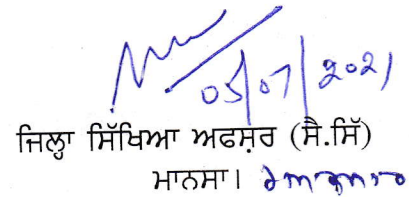 05/07/2021
ਜਿਲ੍ਹਾ ਸਿੱਖਿਆ ਅਫਸ਼ਰ (ਸੈ.ਸਿੱ)
ਮਾਨਸਾ।